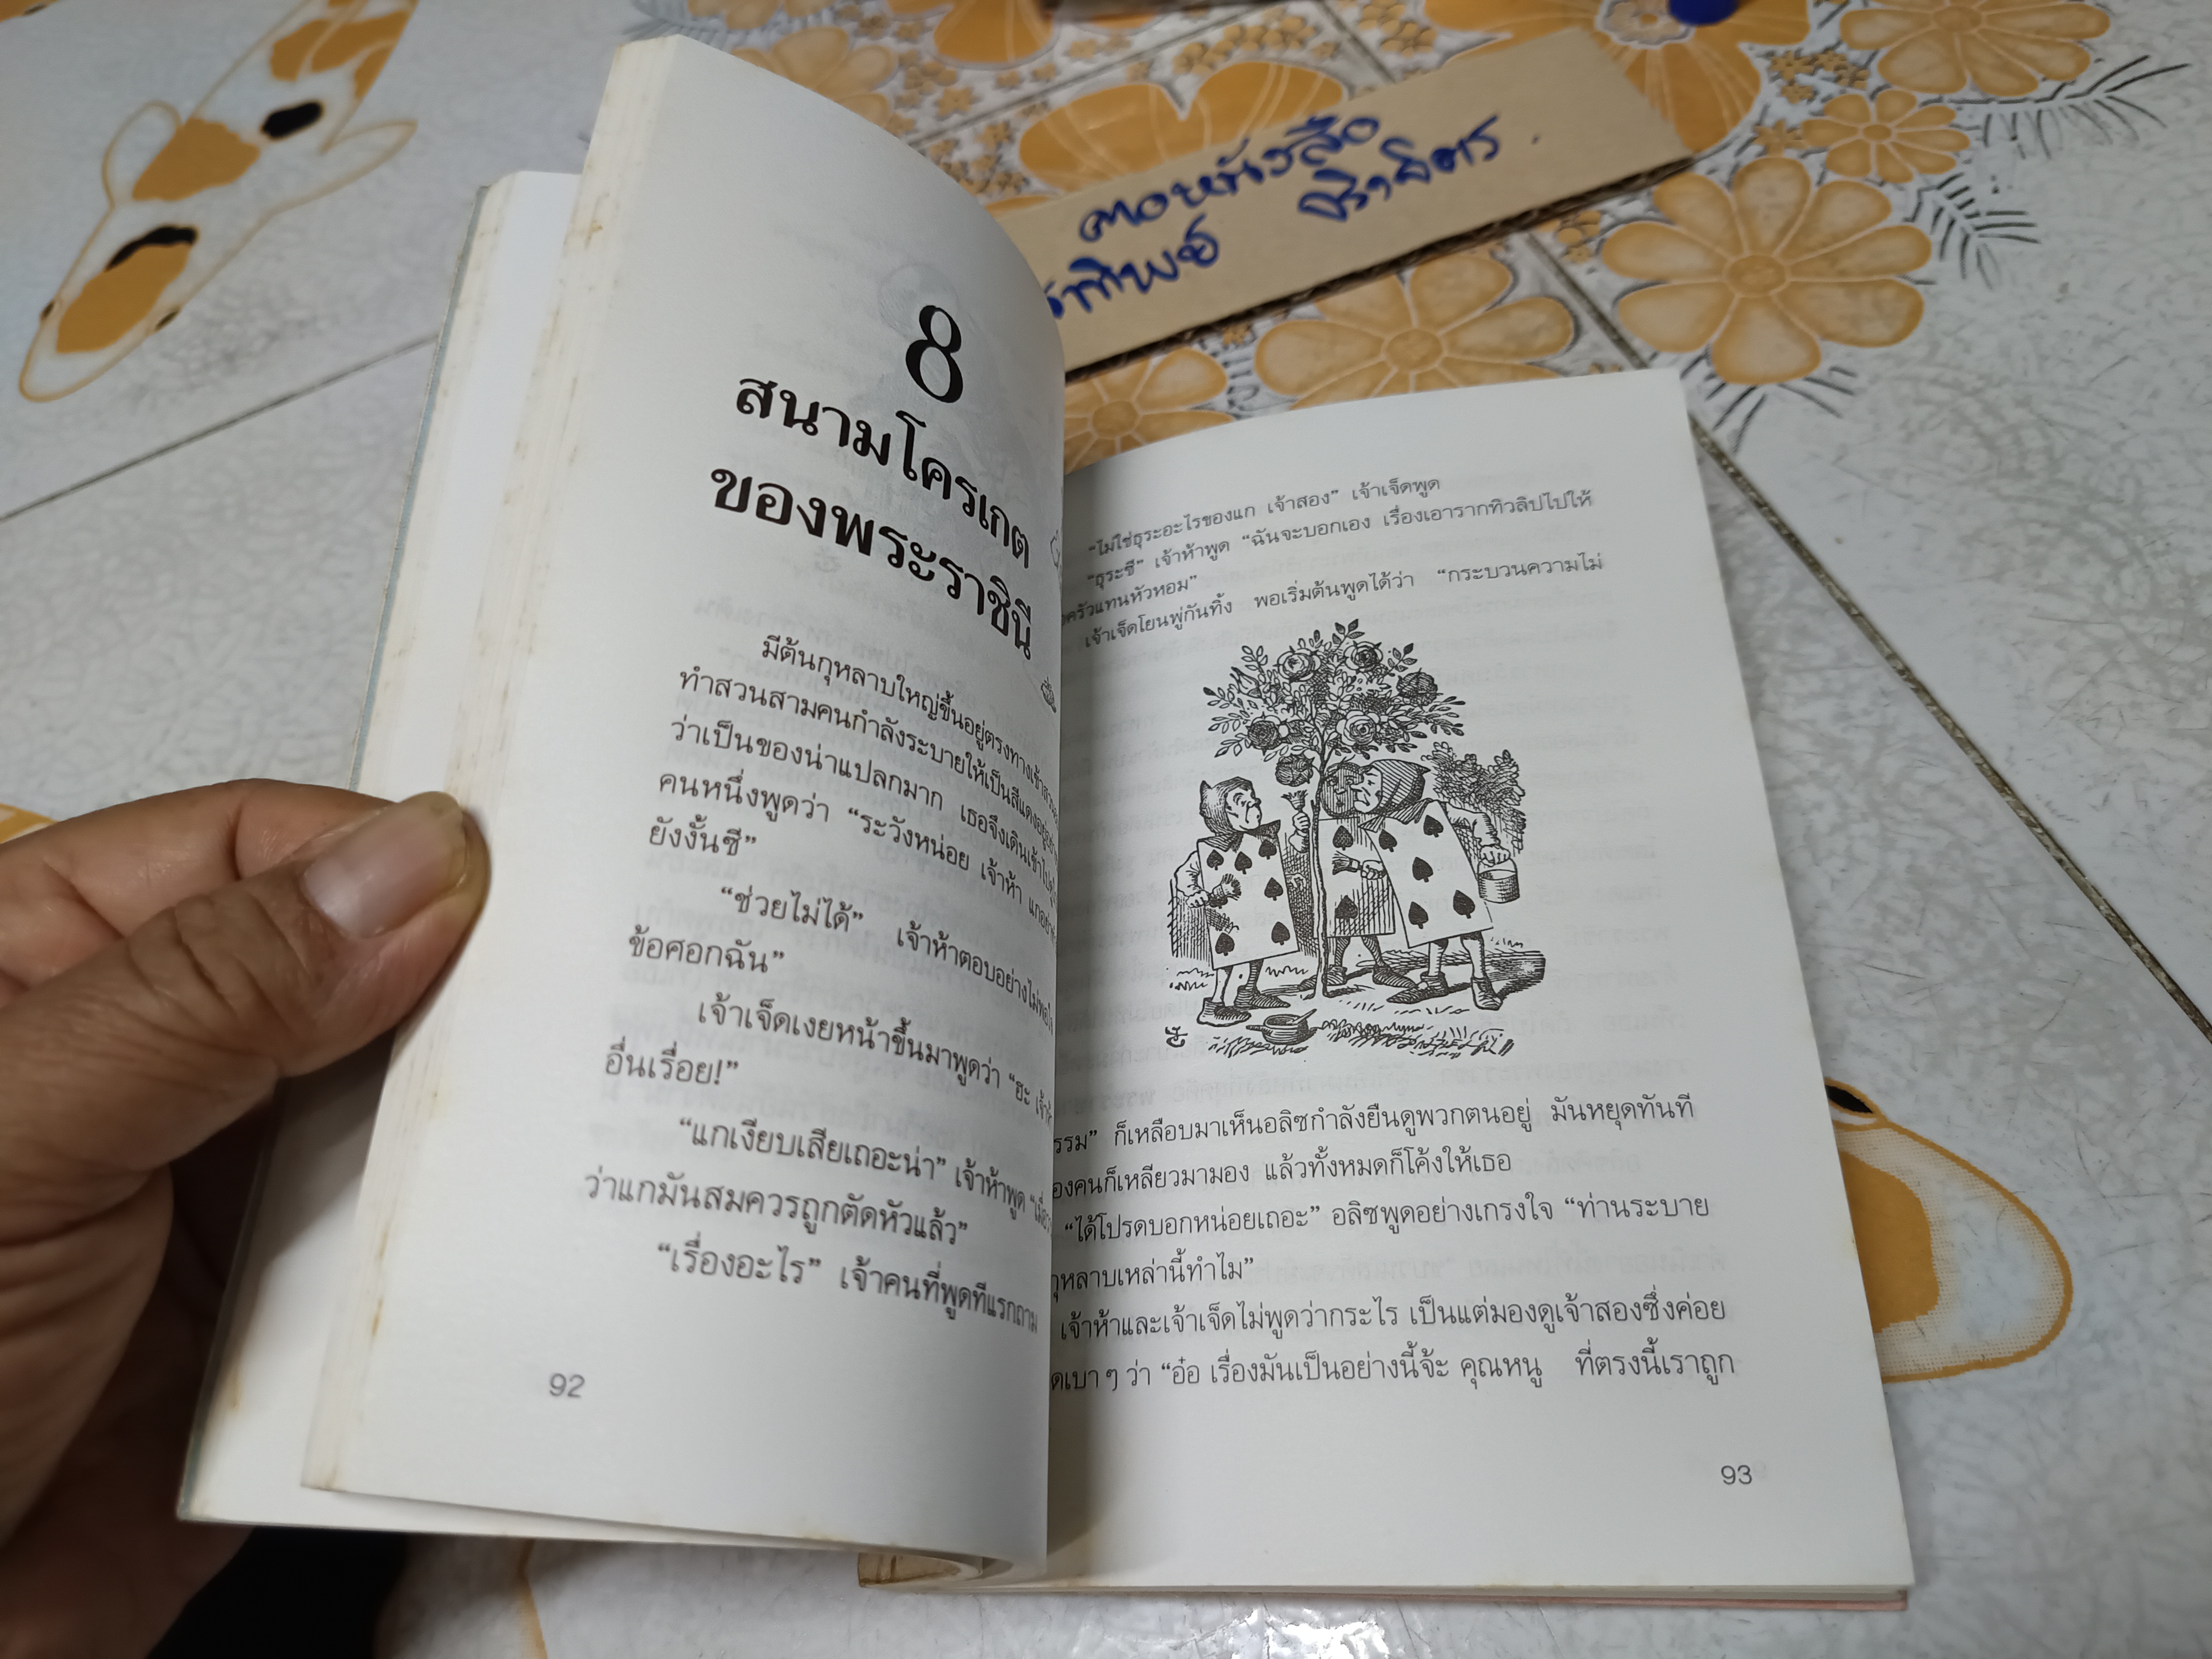 คอหนังสือ
ทิพย์ จิราจิตร
8
สนามโครเกต
ของพระราชินี
มีต้นกุหลาบใหญ่ขึ้นอยู่ตรงทางเข้าสวน
ทำสวนสามคนกำลังระบายให้เป็นสีแดงอยู่อย่าง
ว่าเป็นของน่าแปลกมาก เธอจึงเดินเข้าไปดู
คนหนึ่งพูดว่า “ระวังหน่อย เจ้าห้า แกอย่า
ยังงั้นซี”
“ช่วยไม่ได้” เจ้าห้าตอบอย่างไม่พอใจ
ข้อศอกฉัน”
เจ้าเจ็ดเงยหน้าขึ้นมาพูดว่า “ฮะ เจ้าห้า
อื่นเรื่อย!”
“แกเงียบเสียเถอะน่า” เจ้าห้าพูด “เมื่อวา
ว่าแกมันสมควรถูกตัดหัวแล้ว”
“เรื่องอะไร” เจ้าคนที่พูดทีแรกถาม
92
“ไม่ใช่ธุระอะไรของแก เจ้าสอง” เจ้าเจ็ดพูด
“ธุระซี” เจ้าห้าพูด “ฉันจะบอกเอง เรื่องเอารากทิวลิปไปให้
ครัวแทนหัวหอม”
เจ้าเจ็ดโยนพู่กันทิ้ง พอเริ่มต้นพูดได้ว่า “กระบวนความไม่
รรม” ก็เหลือบมาเห็นอลิซกำลังยืนดูพวกตนอยู่ มันหยุดทันที
องคนก็เหลียวมามอง แล้วทั้งหมดก็โค้งให้เธอ
“ได้โปรดบอกหน่อยเถอะ” อลิซพูดอย่างเกรงใจ “ท่านระบาย
กุหลาบเหล่านี้ทำไม”
เจ้าห้าและเจ้าเจ็ดไม่พูดว่ากระไร เป็นแต่มองดูเจ้าสองซึ่งค่อย
ดเบา ๆ ว่า “อ๋อ เรื่องมันเป็นอย่างนี้จ้ะ คุณหนู ที่ตรงนี้เราถูก
93